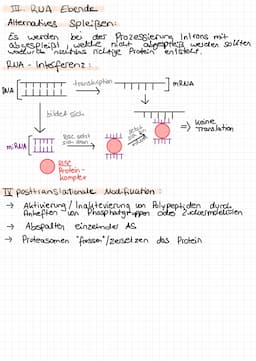 III. RNA Ebene
Alternatives Spleißen:
Es werden bei der Prozessierung Introns mit
abgespleißt, welche nicht abgespleißt werden sollten
wodurch nicht richtige Protein entsteht.
RNA - Interferenz:
DNA transkription mRNA
bildet sich
miRNA RISC setzt sich dran setzt sich => keine
Translation
RISC
Protein-
komplex
IV posttranslationale Modifikation:
→ Aktivierung / Inaktivierung von Polypeptiden durch
Anheften von Phosphatgruppen oder Zuckermolekülen
→ Abspalten einzelner AS
→ Proteasomen "fressen"/zersetzen das Protein